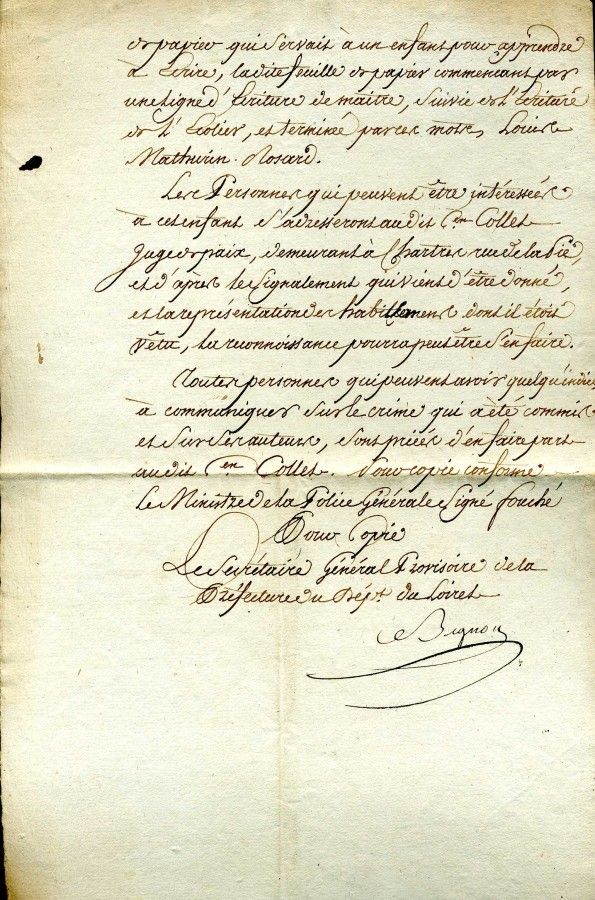 de papier qui servait à un enfant pour apprendre
à Ecrire, ladite feuille de papier commencant par
une ligne d'Ecriture de maitre, Suivie de l'Ecriture
de l'Ecolier, et terminée par ces mots, Louis
Mathurin Rosard.
Les Personnes qui peuvent être intéressées
à cet enfant s'adresseront au dit Cen Collet
Juge de paix, demeurant à Chartres rue de la Pie,
et d'après le signalement qui vient d'être donné,
et la représentation des habillemens dont il étoit
vêtu, la reconnoissance pourra peut être s'en faire.
Toutes personnes qui peuvent avoir quelqu'indice
à communiquer Sur le crime qui a été commis
et Sur Ses auteurs, Sont priées d'en faire part
au dit Cen Collet. Pour copie conforme
Le Ministre de la Police Générale Signé fouché
Pour Copie
Le Secrétaire Général Provisoire de la
Préfecture du Dépt. du Loiret
Bignon